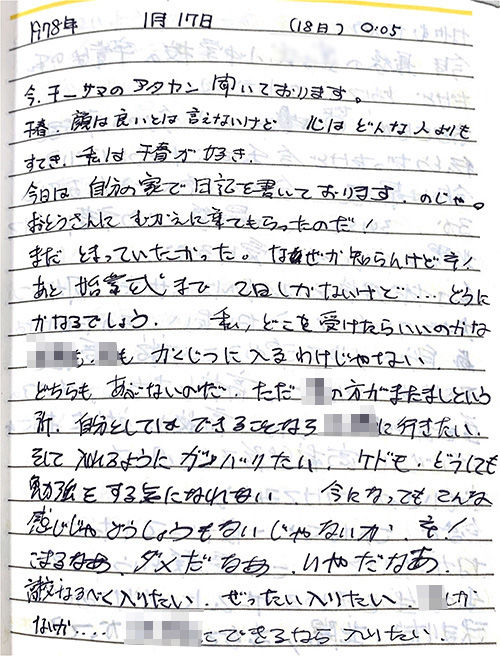 1978年 1月17日 (18日) 0:05
今、チーサマのアタカン聞いております。
千春、顔は良いとは言えないけど 心はどんな人よりも
すてき、私は千春が好き、
今日は自分の家で日記を書いております、のじゃ。
おとうさんにむかえに来てもらったのだ！
まだとまっていたかった。なぜか知らんけどモ！
あと始業式まで2日しかないけど…どうに
かなるでしょう、 私、どこを受けたらいいのかな
も、も かくじつに入るわけじゃない、
どちらもあぶないのだ、ただ の方がまだましという
所、自分としてはできることなら に行きたい、
そして入れるようにガンバリたい、ケドモ、どうしても
勉強をする気になれない、今になってもこんな
感じじゃどうしようもないじゃないか、モ！
こまるなあ、ダメだなあ、いやだなあ、
なるべく入りたい、ぜったい入りたい、しか
ないか…. にできるなら入りたい、